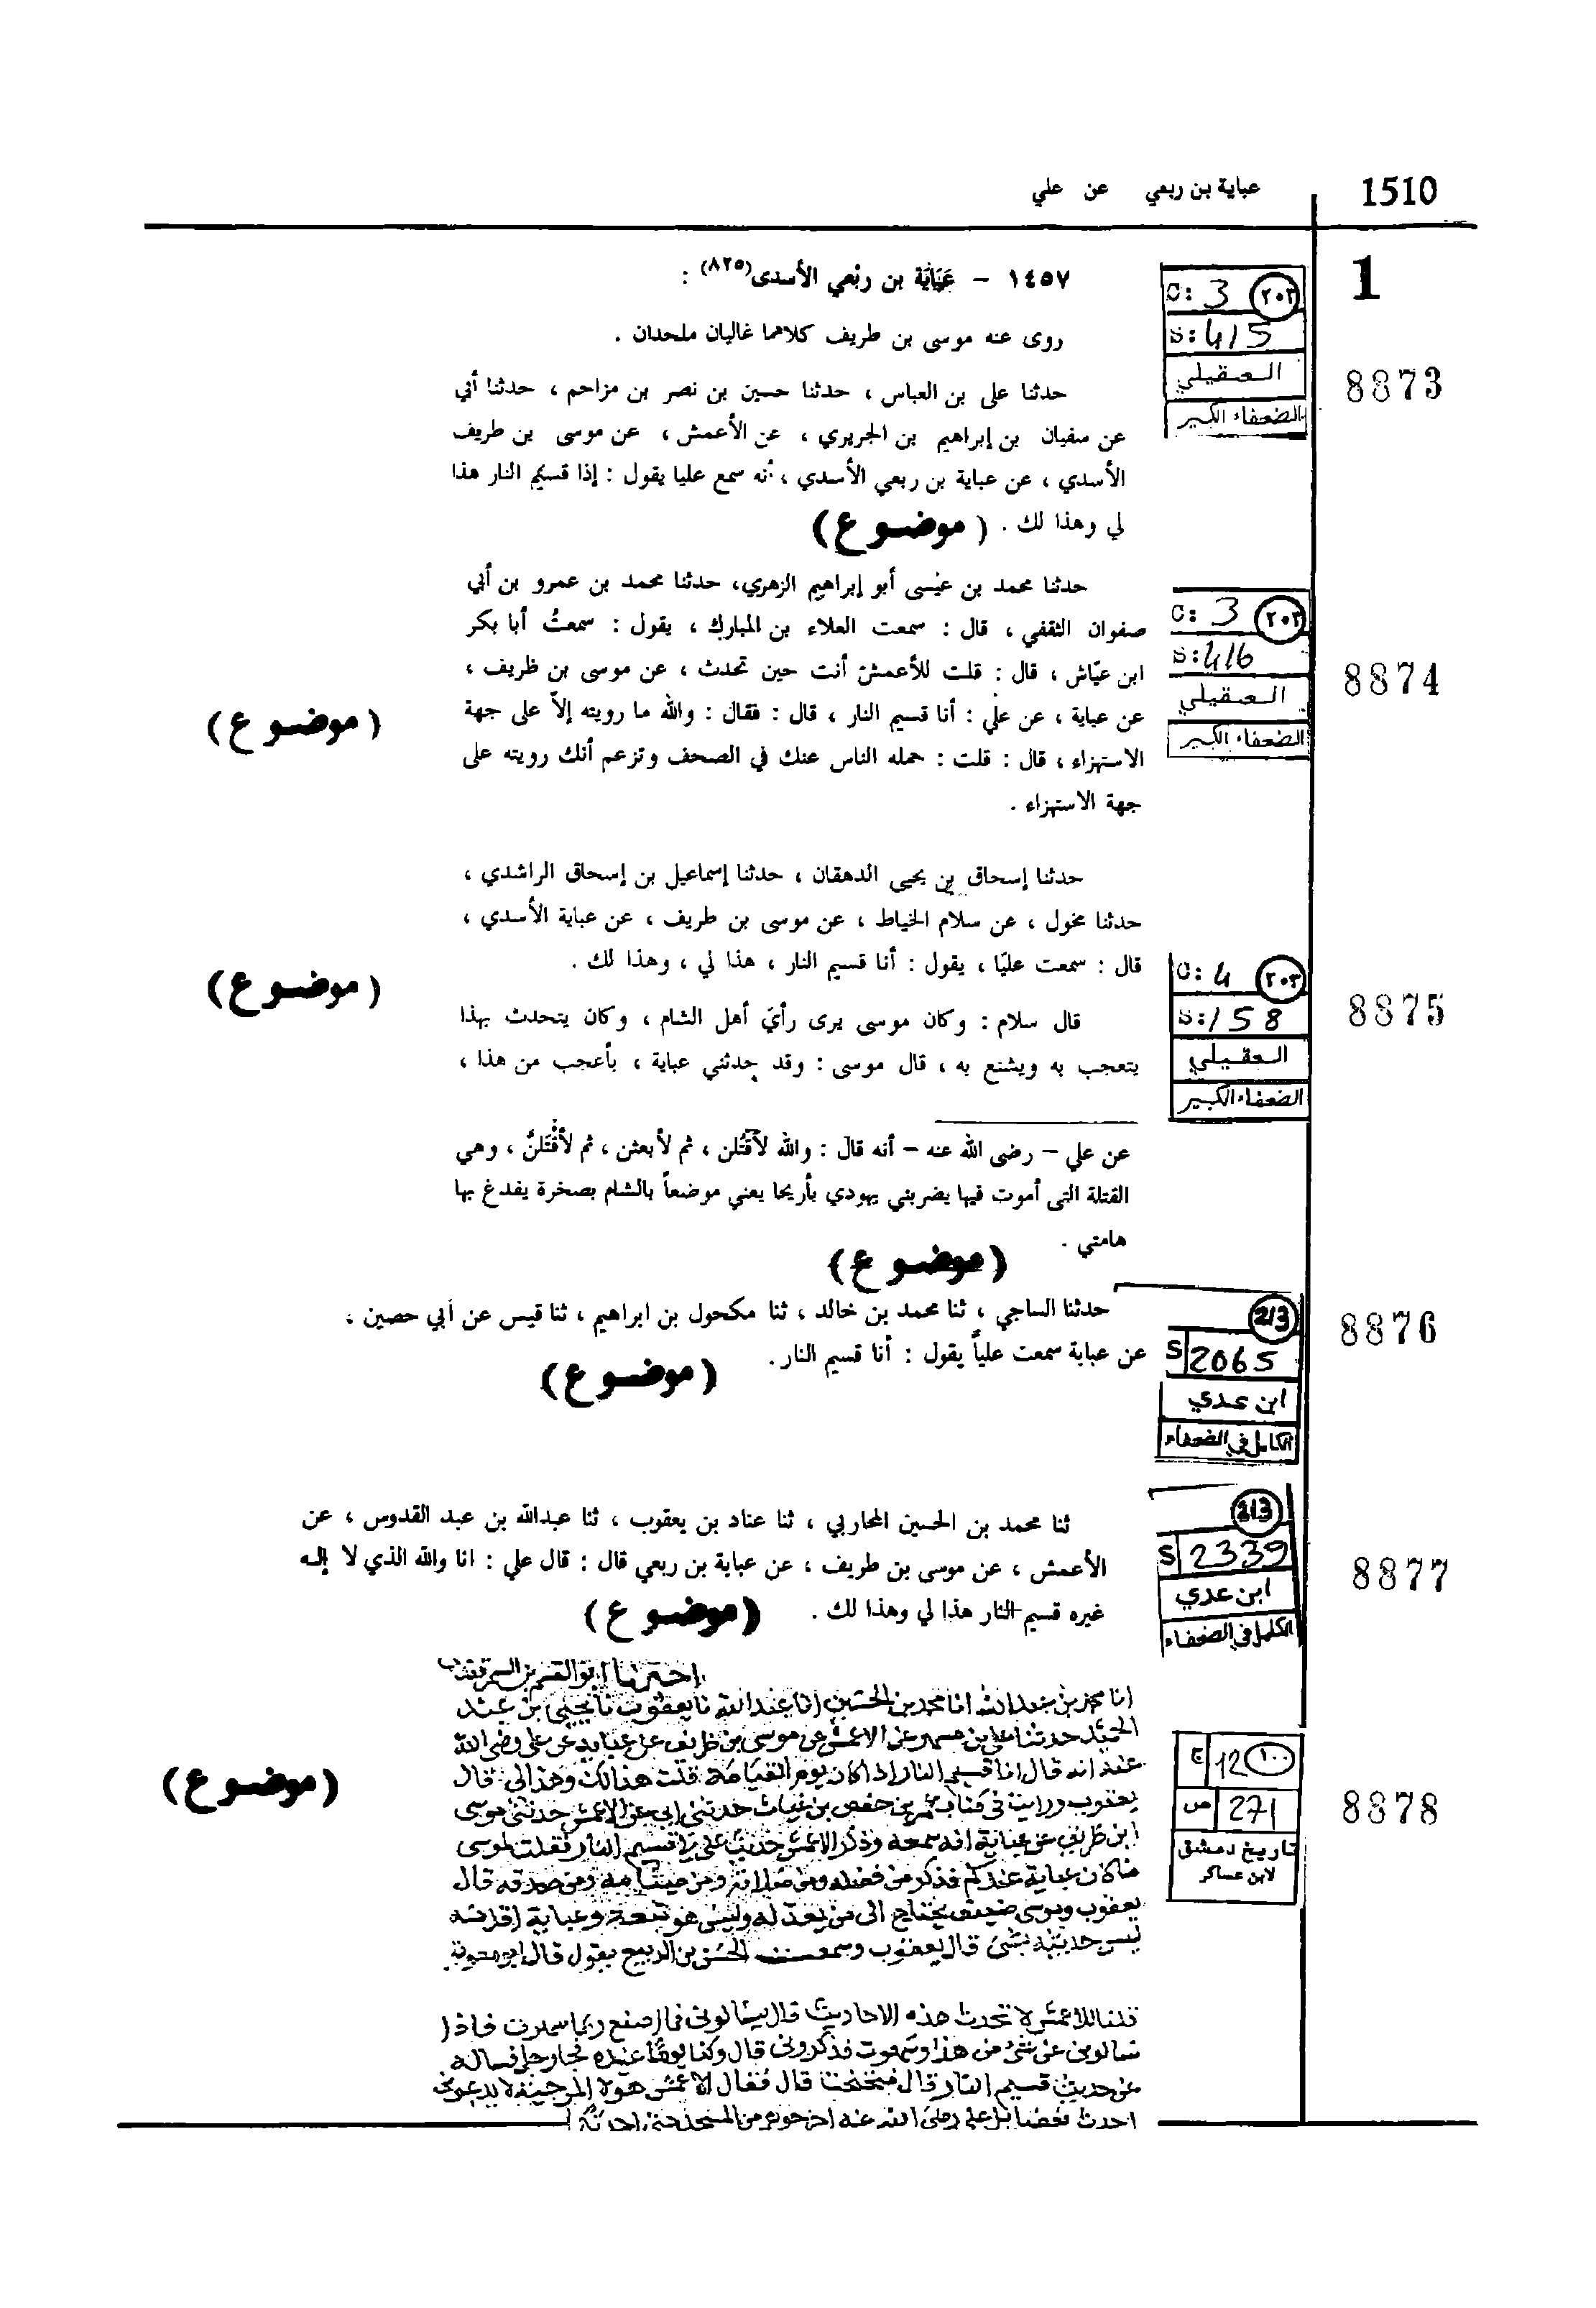 1510
عباية بن ربعي عن علي
1
١٤٥٧ – عَبَايَة بن ربْعي الأسدى(٨٢٥) :
C: 3 ٢٠٣
S: 415
العقيلي
الضعفاء الكبير
8873
روى عنه موسى بن طريف كلاهما غاليان ملحدان .
حدثنا على بن العباس ، حدثنا حسين بن نصر بن مزاحم ، حدثنا أبي
عن سفيان بن إبراهيم بن الجريري ، عن الأعمش ، عن موسى بن طريف
الأسدي ، عن عباية بن ربعي الأسدي ، أنه سمع عليا يقول : إذا قسيم النار هذا
لي وهذا لك . (موضوع)
حدثنا محمد بن عيْسى أبو إبراهيم الزهري، حدثنا محمد بن عمرو بن أبي
صفوان الثقفي ، قال : سمعت العلاء بن المبارك ، يقول : سمعتُ أبا بكر
ابن عيّاش ، قال : قلت للأعمش أنت حين تحدث ، عن موسى بن ظريف ،
عن عباية ، عن علي : أنا قسيم النار ، قال : فقال : والله ما رويته إلاّ على جهة
الاستهزاء ، قال : قلت : حمله الناس عنك في الصحف وتزعم أنك رويته على
جهة الاستهزاء .
(موضوع)
C: 3 ٢٠٣
S: 416
العقيلي
الضعفاء الكبير
8874
حدثنا إسحاق بن يحيى الدهقان ، حدثنا إسماعيل بن إسحاق الراشدي ،
حدثنا مخول ، عن سلام الخياط ، عن موسى بن طريف ، عن عباية الأسدي ،
قال : سمعت عليّا ، يقول : أنا قسيم النار ، هذا لي ، وهذا لك .
(موضوع)
C: 4 ٢٠٣
S: 158
العقيلي
الضعفاء الكبير
8875
قال سلام : وكان موسى يرى رأيَ أهل الشام ، وكان يتحدث بهذا
يتعجب به ويشنع به ، قال موسى : وقد حدثني عباية ، بأعجب من هذا ،
عن علي – رضى الله عنه – أنه قال : والله لأقتُلن ، ثم لأبعثن ، ثم لأقْتَلنَّ ، وهي
القتلة التى أموت فيها يضربني يهودي بأريحا يعني موضعاً بالشام بصخرة يفدغ بها
هامتي .
(موضوع)
حدثنا الساجي ، ثنا محمد بن خالد ، ثنا مكحول بن ابراهيم ، ثنا قيس عن أبي حصين ،
عن عباية سمعت علياً يقول : أنا قسيم النار .
(موضوع)
213
S 2065
ابن عدي
الكامل في الضعفاء
8876
ثنا محمد بن الحسين المحاربي ، ثنا عناد بن يعقوب ، ثنا عبدالله بن عبد القدوس ، عن
الأعمش ، عن موسى بن طريف ، عن عباية بن ربعي قال : قال علي : انا والله الذي لا إله
غيره قسيم النار هذا لي وهذا لك .
(موضوع)
213
S 2339
ابن عدي
الكامل في الضعفاء
8877
اخبرنا ابو القسم بن السمرقندي
انا محمد بن عبد الله انا محمد بن الحسين انا عبد الله نا يعقوب نا يحيى بن عبد
الحميد حدثنا علي بن مسهر عن الاعمش عن موسى بن ظريف عن عباية عن علي رضي الله
عنه انه قال انا قسيم النار اذا كان يوم القيامة قلت هذا لك وهذا لي قال
يعقوب ورايت في كتاب عمر بن حفص بن غياث حدثني ابي عن الاعمش حدثني موسى
ابن ظريف عن عباية انه سمعه وذكر الاعمش حديث علي انا قسيم النار فقلت لموسى
ما كان عباية عندكم فذكر من فضله ومن صلاته ومن صيامه ومن صدقه قال
يعقوب وموسى ضعيف يحتاج الى من يعدله وليس هو بثقة وعباية اقل منه
ليس حديثه بشئ قال يعقوب وسمعت الحسن بن الربيع يقول قال ابو معوية
قلنا للاعمش لا تحدث هذه الاحاديث قال يسالوني فما اصنع ربما سهوت فاذا
سالوني عن شئ من هذا وسهوت فذكروني قال وكنا يوما عنده فجا رجل فساله
عن حديث قسيم النار قال فتنحنحت قال فقال الاعمش هولا المرجئة لا يدعوني
احدث بفضايل علي رضي الله عنه اخرجوهم من المسجد حتى احدثكم
(موضوع)
١٠٠ 12 ج
271 ص
تاريخ دمشق
لابن عساكر
8878